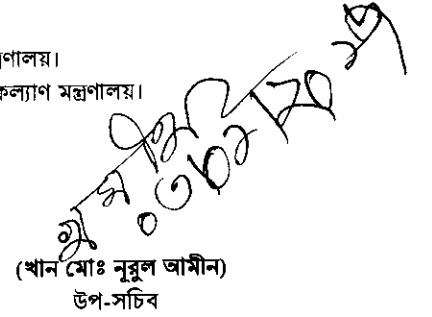 ণালয়।
কল্যাণ মন্ত্রণালয়।
(খান মোঃ নূরুল আমীন)
উপ-সচিব